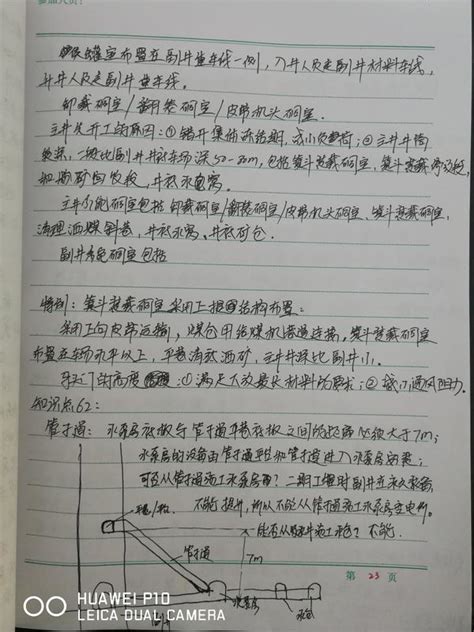 罐室布置在副井空车线一侧，入井人员走副井材料车线，
升井人员走副井重车线。
卸载硐室/翻笼硐室/皮带机头硐室。
主井后开工的原因：①错开集中冻结期，减小负荷；②主井井筒
一般比副井井底车场深50-70m，包括箕斗装载硐室、箕斗
井底水窝。
主井系统硐室包括卸载硐室/翻笼硐室/皮带机头硐室、箕斗装载硐室、
清理洒煤斜巷、井底水窝、井底矿仓。
副井系统硐室包括
特别：箕斗装载硐室采用上提图结构布置：
采用上向皮带运输，煤仓用给煤机巷道连接，箕斗装载硐室
布置在车场水平以上，平巷清洒矿，主井井深比副井小。
马头门的高度：①满足下放最长材料的要求；②减小通风阻力。
知识点62：
管子道：水泵房底板与管子道平巷底板之间的距离必须大于7m；
水泵房的设备由管子道平台和管子道进入水泵房安装；
可否从管子道施工水泵房？二期工程时副井在永久装备，
不能提升，所以不能从管子道施工水泵房变电所。
能否从施工？不能。
管子道
7m
水泵房
第 23 页
HUAWEI P10
LEICA DUAL CAMERA